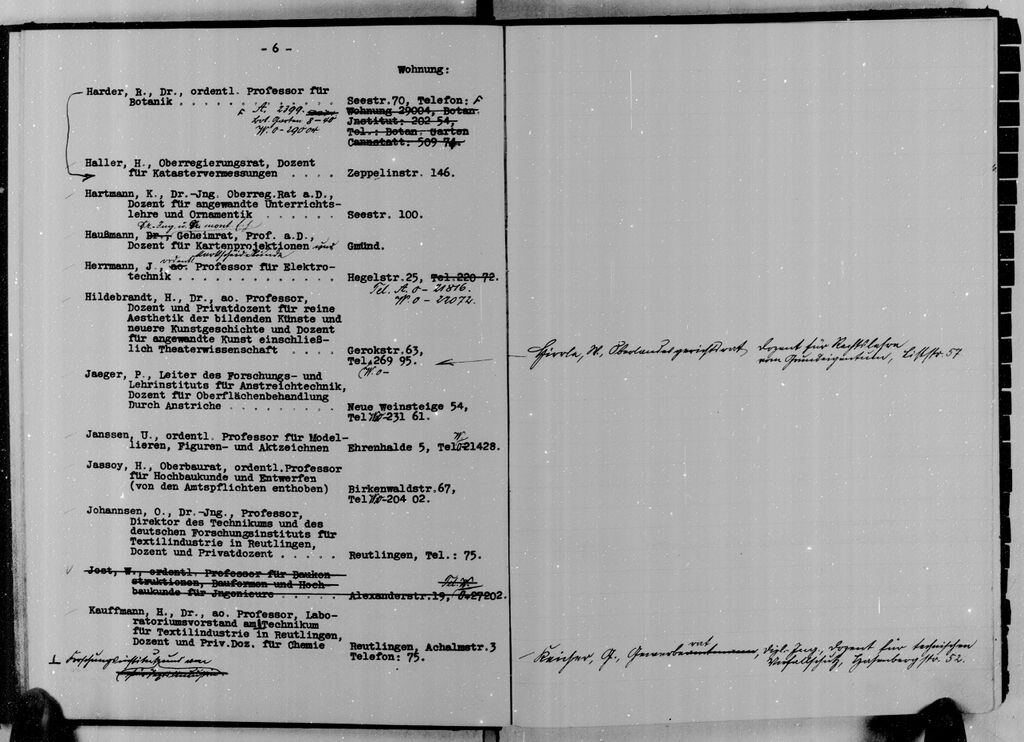 - 6 -
Wohnung:
Harder, R., Dr., ordentl. Professor für
Botanik . . . . . . . . . . . Seestr.70, Telefon: F
F A. 2399. Wohnung 29004, Botan.
Bot. Garten 8-40 Jnstitut: 202 54,
W. 0-29004 Tel.: Botan. Garten
Cannstatt: 509 74.
Haller, H., Oberregierungsrat, Dozent
für Katastervermessungen . . . . Zeppelinstr. 146.
Hartmann, K., Dr.-Jng. Oberreg.Rat a.D.,
Dozent für angewandte Unterrichts-
lehre und Ornamentik . . . . . . Seestr. 100.
Dr. Ing u. mont
Haußmann, Dr., Geheimrat, Prof. a.D.,
Dozent für Kartenprojektionen und Gmünd.
Markscheidekunde
ordentl.
Herrmann, J., ao. Professor für Elektro-
technik . . . . . . . . . . . . Hegelstr.25, Tel.220 72.
Tel. A. 0- 21816
W. 0- 22072.
Hildebrandt, H., Dr., ao. Professor,
Dozent und Privatdozent für reine
Aesthetik der bildenden Künste und
neuere Kunstgeschichte und Dozent
für angewandte Kunst einschließ-
lich Theaterwissenschaft . . . . Gerokstr.63,
Tel.269 95.
W. 0-
Jaeger, P., Leiter des Forschungs- und
Lehrinstituts für Anstreichtechnik,
Dozent für Oberflächenbehandlung
Durch Anstriche . . . . . . . . . Neue Weinsteige 54,
Tel W0-231 61.
Janssen, U., ordentl. Professor für Model-
lieren, Figuren- und Aktzeichnen Ehrenhalde 5, Tel W 0-21428.
Jassoy, H., Oberbaurat, ordentl.Professor
für Hochbaukunde und Entwerfen
(von den Amtspflichten enthoben) Birkenwaldstr.67,
Tel W0-204 02.
Johannsen, O., Dr.-Jng., Professor,
Direktor des Technikums und des
deutschen Forschungsinstituts für
Textilindustrie in Reutlingen,
Dozent und Privatdozent . . . . . Reutlingen, Tel.: 75.
Jost, W., ordentl. Professor für Baukon
struktionen, Bauformen und Hoch- Tel. W
baukunde für Jngenieure . . . . . Alexanderstr.19, 0-27202.
Kauffmann, H., Dr., ao. Professor, Labo-
ratoriumsvorstand am Technikum
für Textilindustrie in Reutlingen,
Dozent und Priv.Doz. für Chemie Reutlingen, Achalmstr.3
Telefon: 75.
Forschungsinstitut und am
Hirrle, W. Oberlandesgerichtsrat Dozent für Rechtslehre
vom Grundeigentum, Liststr. 57
rat
Reicher, G., Gewerbeamtmann, Dipl. Ing., Dozent für technischen
Unfallschutz, Hasenbergstr. 52.